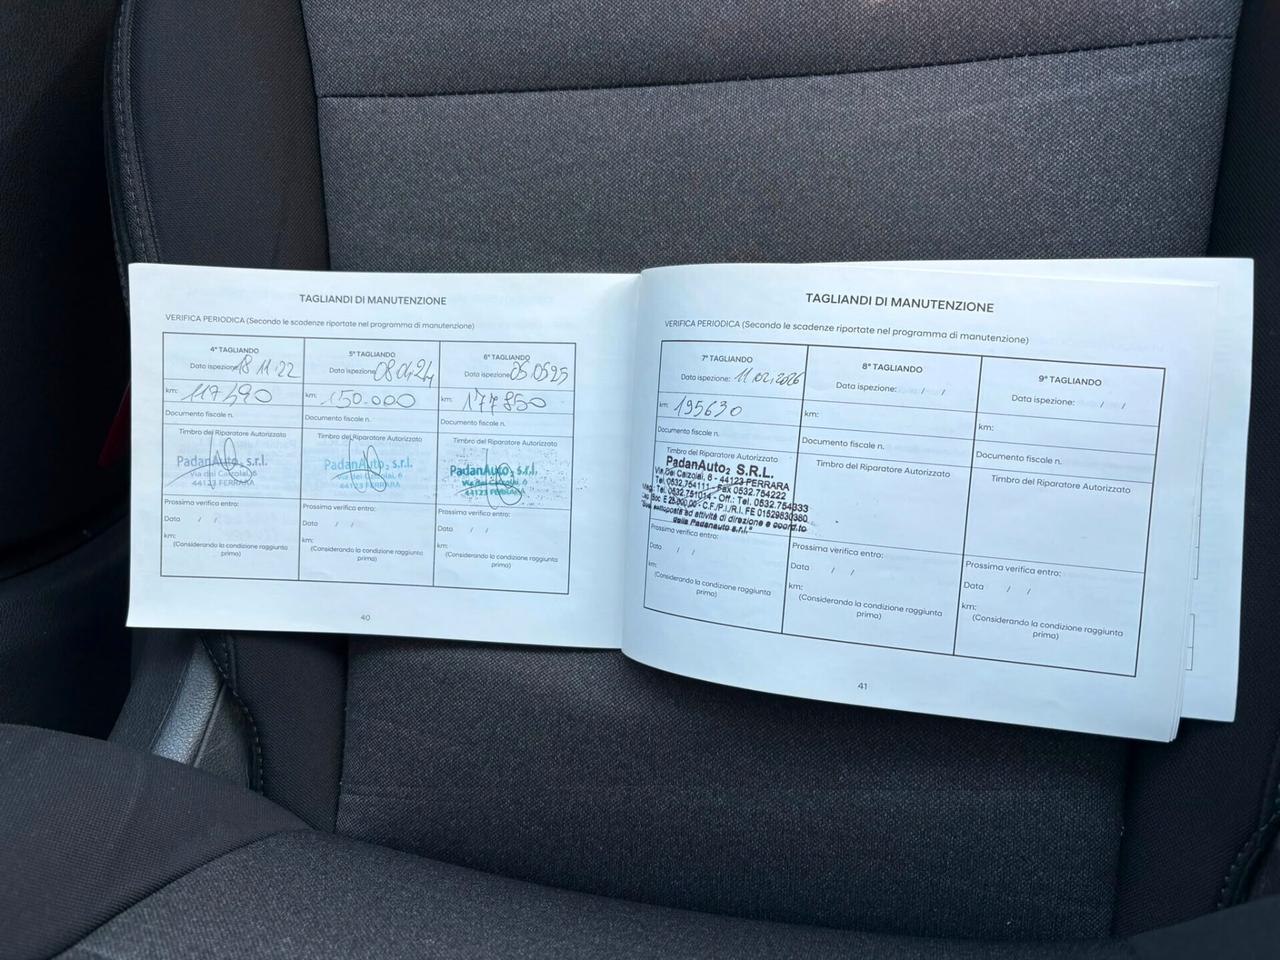 TAGLIANDI DI MANUTENZIONE
VERIFICA PERIODICA (Secondo le scadenze riportate nel programma di manutenzione)
4° TAGLIANDO
Data ispezione: 18 11 22
km: 117490
Documento fiscale n.
Timbro del Riparatore Autorizzato
PadanAuto2 s.r.l.
Via dei Calzolai, 6
44123 FERRARA
Prossima verifica entro:
Data / /
km:
(Considerando la condizione raggiunta
prima)
5° TAGLIANDO
Data ispezione: 08 04 24
km: 150.000
Documento fiscale n.
Timbro del Riparatore Autorizzato
PadanAuto2 s.r.l.
Via dei Calzolai, 6
44123 FERRARA
Prossima verifica entro:
Data / /
km:
(Considerando la condizione raggiunta
prima)
6° TAGLIANDO
Data ispezione: 05.05 25
km: 177850
Documento fiscale n.
Timbro del Riparatore Autorizzato
PadanAuto2 s.r.l.
Via dei Calzolai, 6
44123 FERRARA
Prossima verifica entro:
Data / /
km:
(Considerando la condizione raggiunta
prima)
40
TAGLIANDI DI MANUTENZIONE
VERIFICA PERIODICA (Secondo le scadenze riportate nel programma di manutenzione)
7° TAGLIANDO
Data ispezione: 11.02.2026
km: 195630
Documento fiscale n.
Timbro del Riparatore Autorizzato
PadanAuto2 S.R.L.
Via Dei Calzolai, 6 - 44123 FERRARA
Tel. 0532.754111 - Fax 0532.754222
Mag.: Tel. 0532.751014 - Off.: Tel. 0532.754333
Cap. Soc. € 25.000,00 - C.F./P.I./R.I. FE 01529830380
sottoposta ad attività di direzione e coord.to
della Padanauto s.r.l."
Prossima verifica entro:
Data / /
km:
(Considerando la condizione raggiunta
prima)
8° TAGLIANDO
Data ispezione: / /
km:
Documento fiscale n.
Timbro del Riparatore Autorizzato
Prossima verifica entro:
Data / /
km:
(Considerando la condizione raggiunta
prima)
9° TAGLIANDO
Data ispezione: / /
km:
Documento fiscale n.
Timbro del Riparatore Autorizzato
Prossima verifica entro:
Data / /
km:
(Considerando la condizione raggiunta
prima)
41